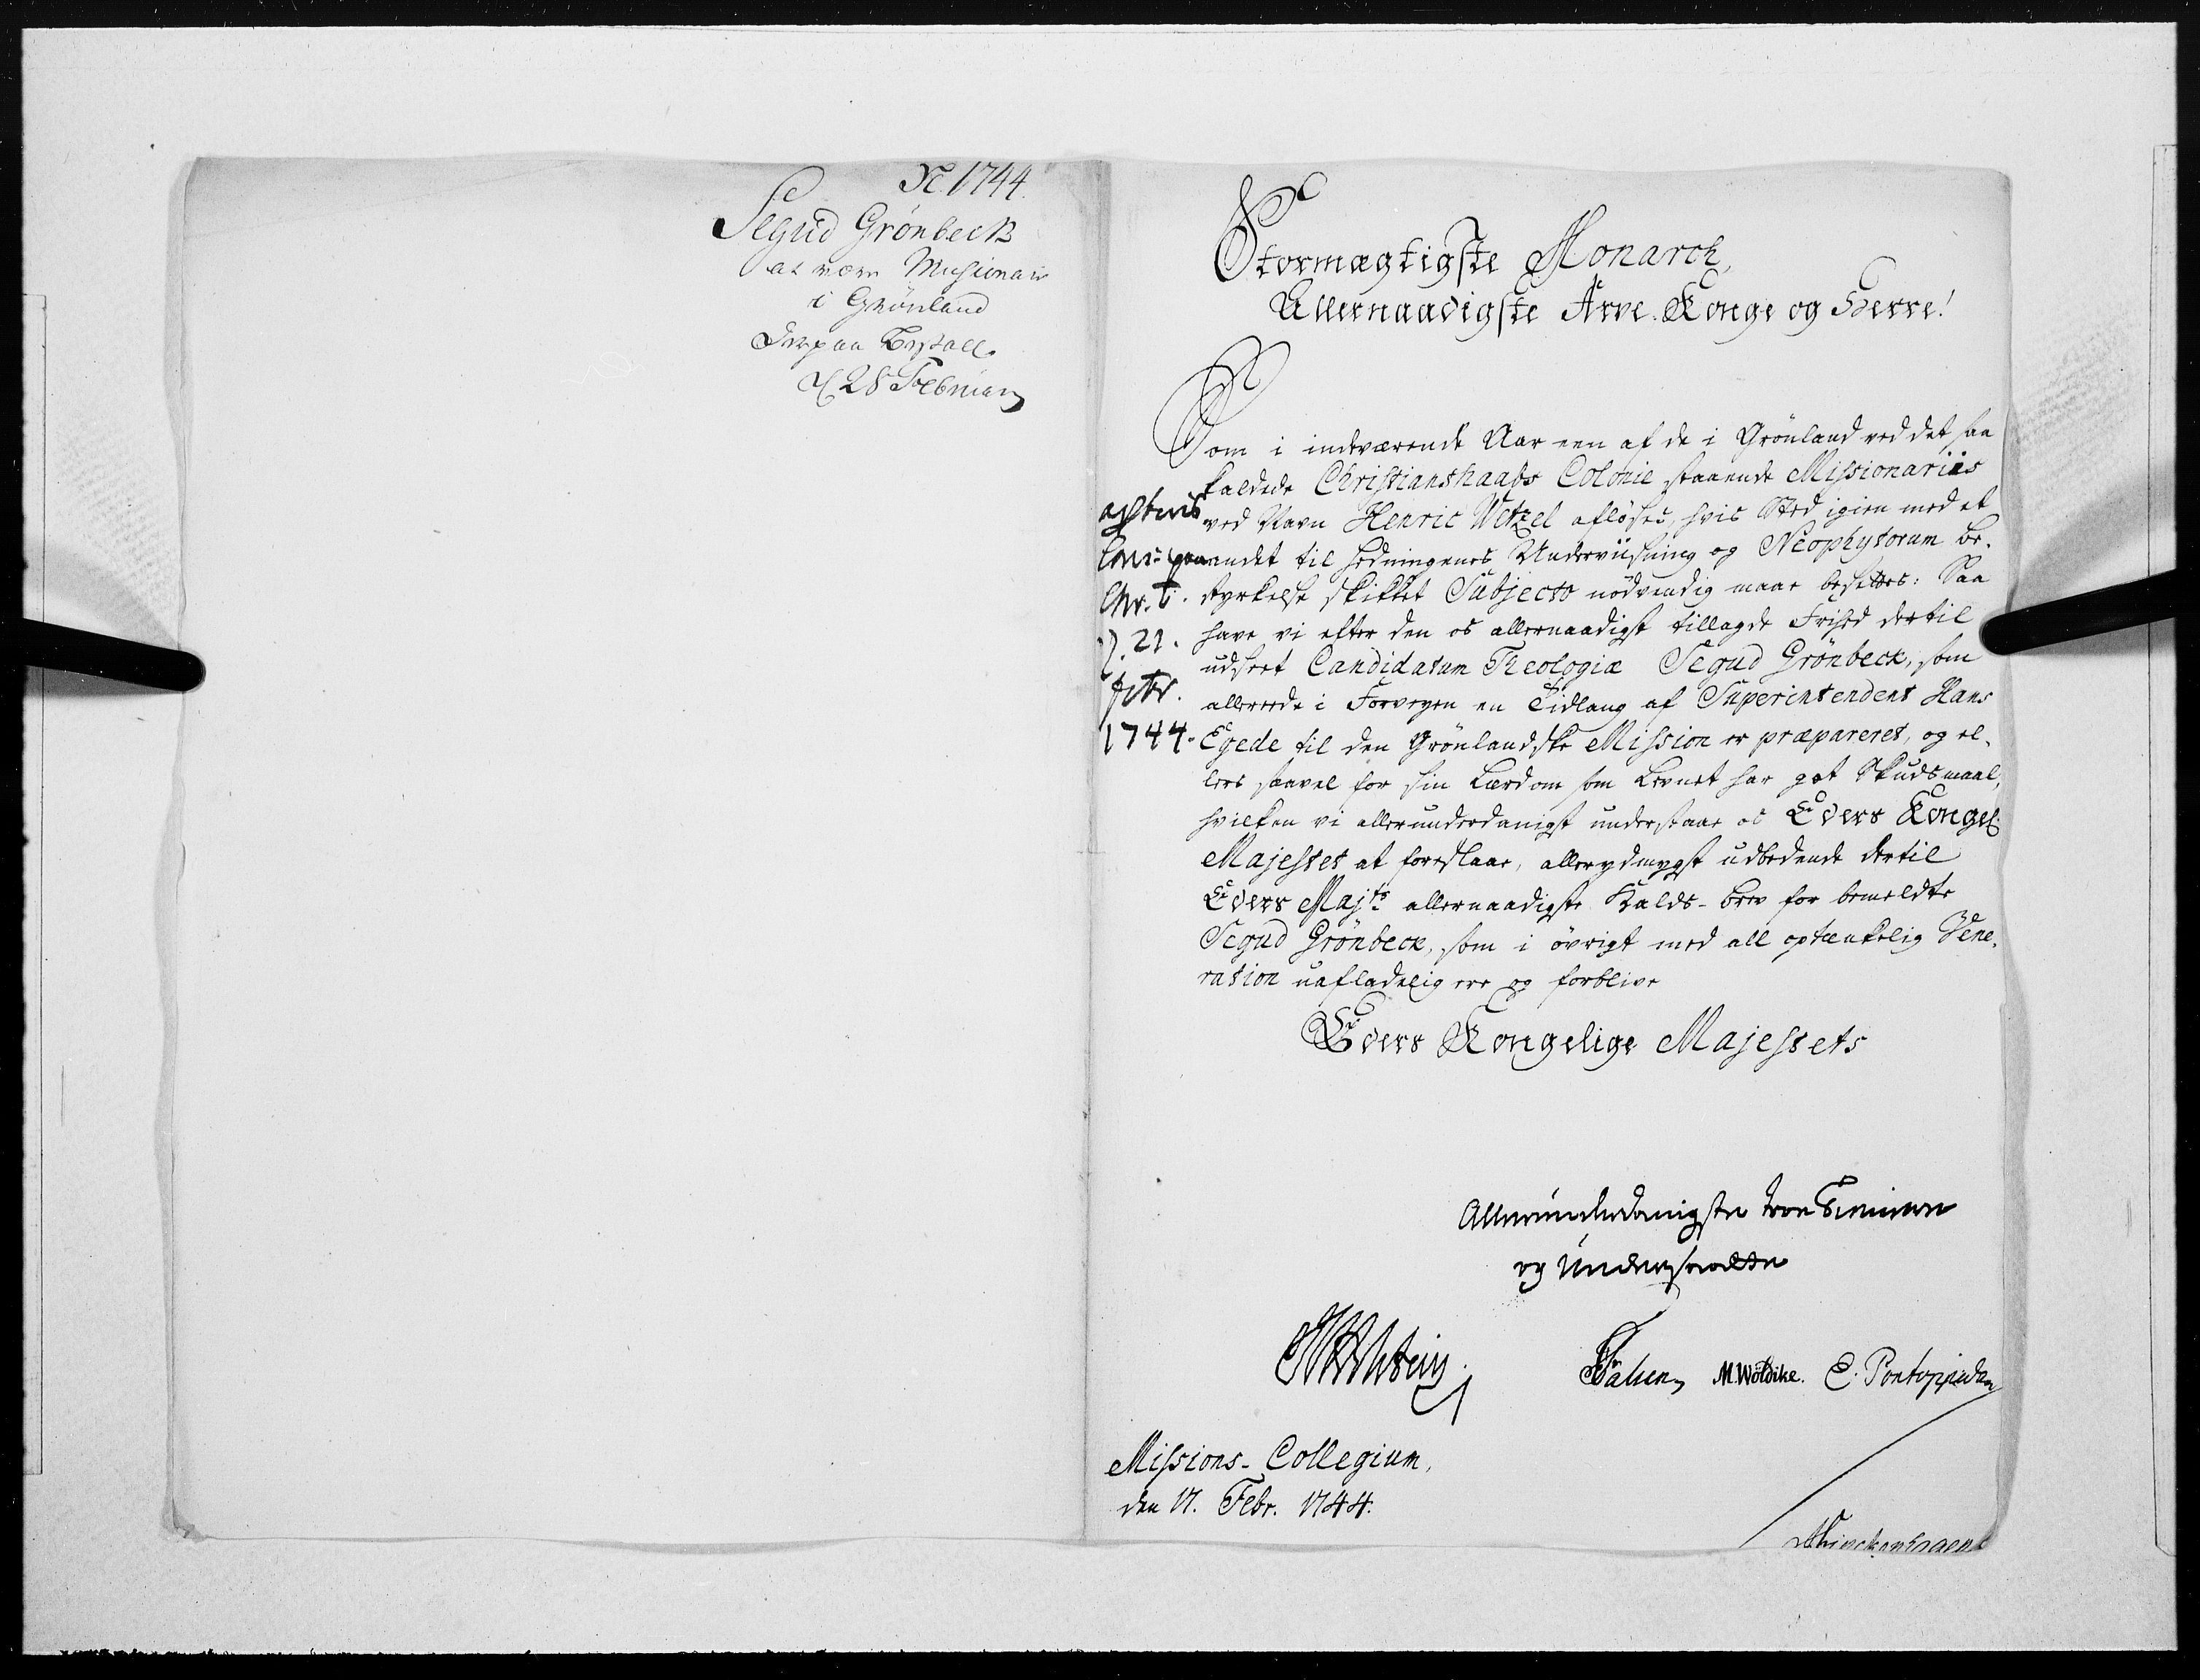 1744.
Segud Grönbeck
at være Missionair
i Grönland
Derpaa Bestall.
28 Februar
Stormægtigste Monarch,
Allernaadigste Arve-Konge og Herre!
Som i indeværende Aar een af de i Grönland ved det saa
kaldede Christianshaabs Colonie staaende Missionariis
ved Navn Henric Wetzel aflöses, hvis Sted igien med et
andet til Hedningenes Underviisning og Neophytorum be-
styrkelse skikket Subjecto nödvendig maae besettes: Saa
have vi efter den os allernaadigst tillagde Frihed dertil
udseet Candidatum Theologiæ Segud Grönbeck, som
allerede i Forveyen en Tidlang af Superintendent Hans
Egede til den Grönlandske Mission er præpareret, og el-
lers saavel for sin Lærdom som Levnet har got Skudsmaal,
hvilken vi allerunderdanigst understaae os Eders Kongel.
Majestet at foreslaae, allerydmygst udbedende dertil
Eders Majts allernaadigste Kalds-brev for bemeldte
Segud Grönbeck, som i övrigt med all optænkelig Vene-
ration uafladelig ere og forblive
Eders Kongelige Majestets
21.
Febr.
1744.
Allerunderdanigste troe Tienere
og Undersaatte
Holstein
M. Wöldike. E. Pontoppidan
Missions-Collegium,
den 17. Febr. 1744.